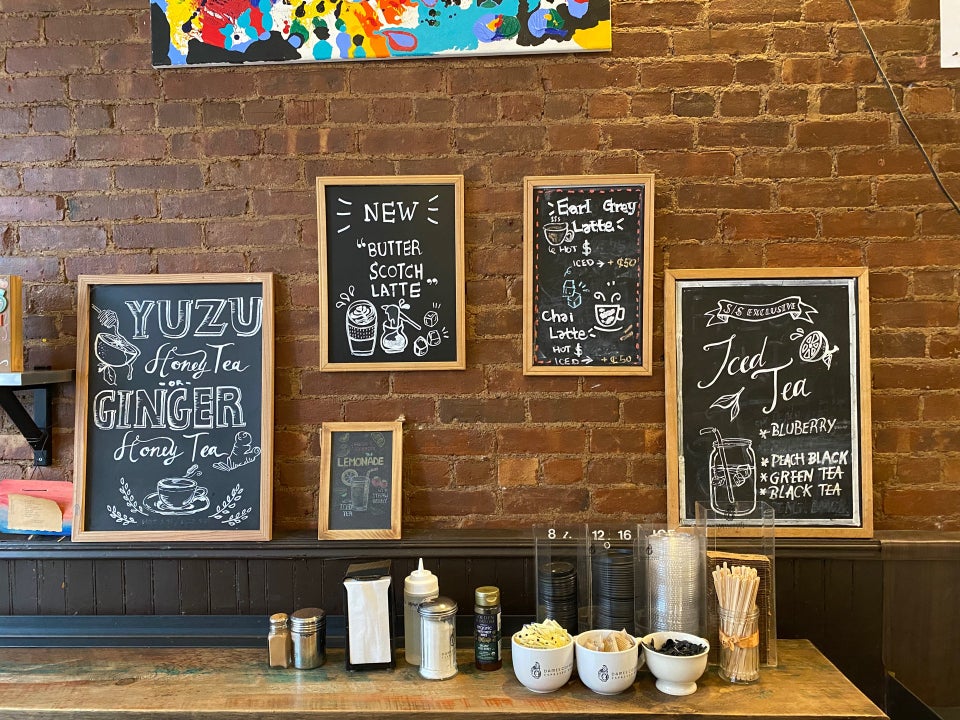 YUZU
Honey Tea
OR
GINGER
Honey Tea
NEW
"BUTTER
SCOTCH
LATTE"
LEMONADE
ICED
TEA
Earl Grey
Latte
HOT $
ICED → + $.50
Chai
Latte
HOT $
ICED → + $.50
S/S EXCLUSIVE
Iced
Tea
* BLUBERRY
* PEACH BLACK
* GREEN TEA
* BLACK TEA
8
12 16